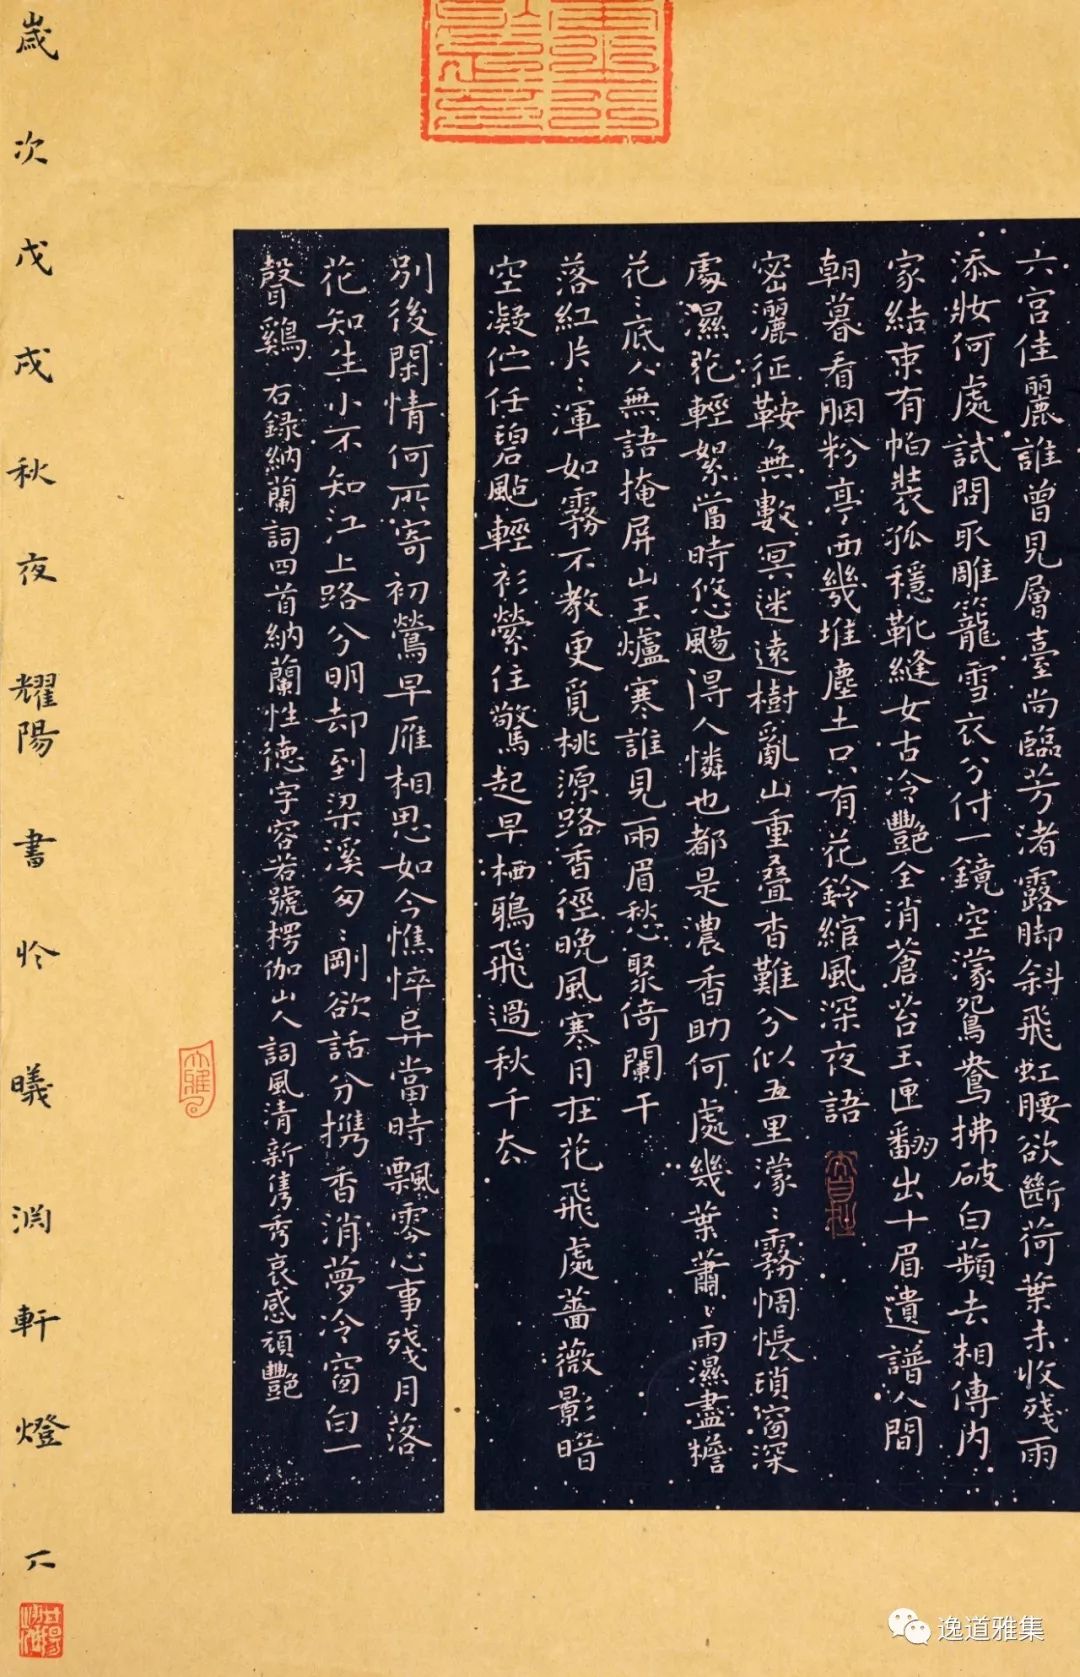 六宮佳麗誰曾見層臺尚臨芳渚露脚斜飛虹腰欲斷荷葉未收殘雨
添妝何處試問取雕籠雪衣分付一鏡空濛鴛鴦拂破白蘋去相傳内
家結束有帕裝孤穩靴縫女古冷豔全消蒼苔玉匣翻出十眉遺譜人間
朝暮看胭粉亭西幾堆塵土只有花鈴綰風深夜語
密灑征鞍無數冥迷遠樹亂山重疊杳難分似五里濛〻霧惆悵瑣窗深
處濕花輕絮當時悠颺得人憐也都是濃香助何處幾葉蕭〻雨濕盡檐
花〻底人無語掩屏山玉爐寒誰見兩眉愁聚倚闌干
落紅片〻渾如霧不教更覓桃源路香徑晚風寒月在花飛處薔薇影暗
空凝伫任碧颭輕衫縈住驚起早栖鴉飛過秋千去
別後閑情何所寄初鶯早雁相思如今憔悴異當時飄零心事殘月落
花知生小不知江上路分明却到梁溪匆〻剛欲話分携香消夢冷窗白一
聲鷄 右録納蘭詞四首納蘭性德字容若號楞伽山人詞風清新雋秀哀感頑豔
歲次戊戌秋夜耀陽書於曦淵軒燈下
逸道雅集